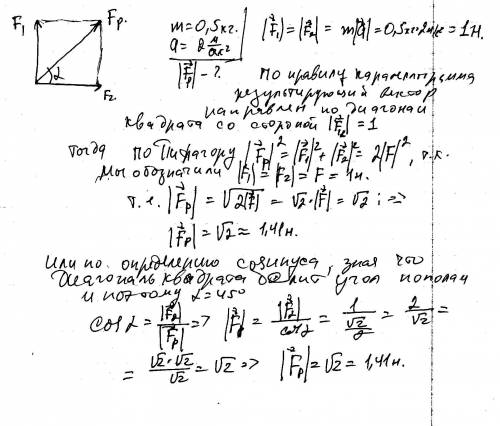 F₁ Fр.
α
F₂
m=0,5кг.
a=2 м/сек²
|F⃗р| - ?
|F⃗₁|=|F⃗₂|= m|a⃗|=0,5кг·2м/с²=1Н.
По правилу параллелограмма
результирующий вектор
направлен по диагонали
квадрата со стороной |F⃗₂|=1
тогда по Пифагору |F⃗р|²=|F⃗₁|²+|F⃗₂|²=2|F|², т.к.
Мы обозначили |F₁|=|F₂|=F=1н.
т.е. |F⃗р|=√2|F⃗|²=√2·|F⃗|=√2; =>
|F⃗р|=√2≈1,41н.
Или по определению косинуса, зная что
Диагональ квадрата делит угол пополам
и поэтому α=45°
cosα=|F⃗₂|/|F⃗р| => |F⃗р|=|F⃗₂|/cosα=1/(√2/2)=2/√2=
=√2·√2/√2=√2 => |F⃗р|=√2=1,41н.